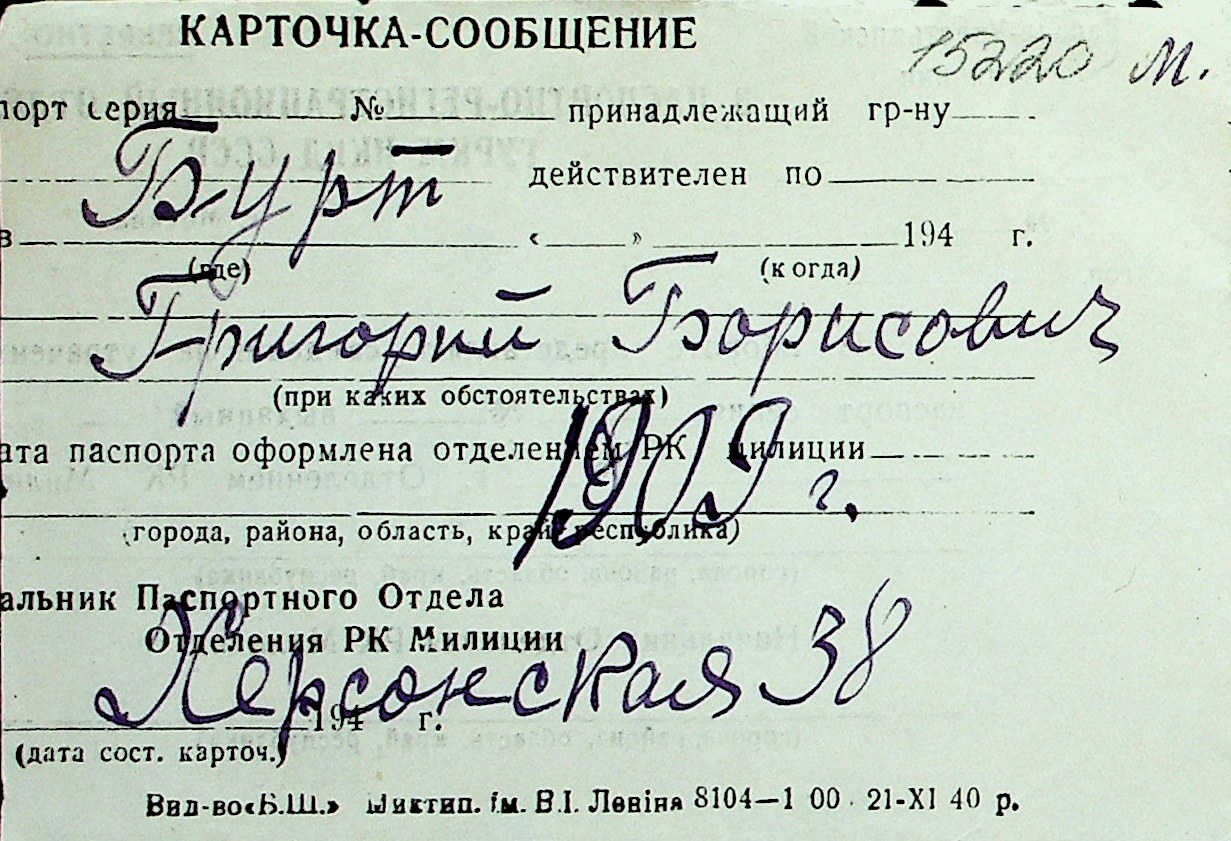 КАРТОЧКА-СООБЩЕНИЕ
15220 м.
порт серия № принадлежащий гр-ну
Бурт
действителен по
в « » 194 г.
(где) (когда)
Григорий Борисович
(при каких обстоятельствах)
1909 г.
ата паспорта оформлена отделением РК милиции
(города, района, область, край, республика)
альник Паспортного Отдела
Отделения РК Милиции
Херсонская 38
194 г.
(дата сост. карточ.)
Вид-во «Б.Ш.» Миктип. ім. В.І. Леніна 8104—1 00 21-XI 40 р.